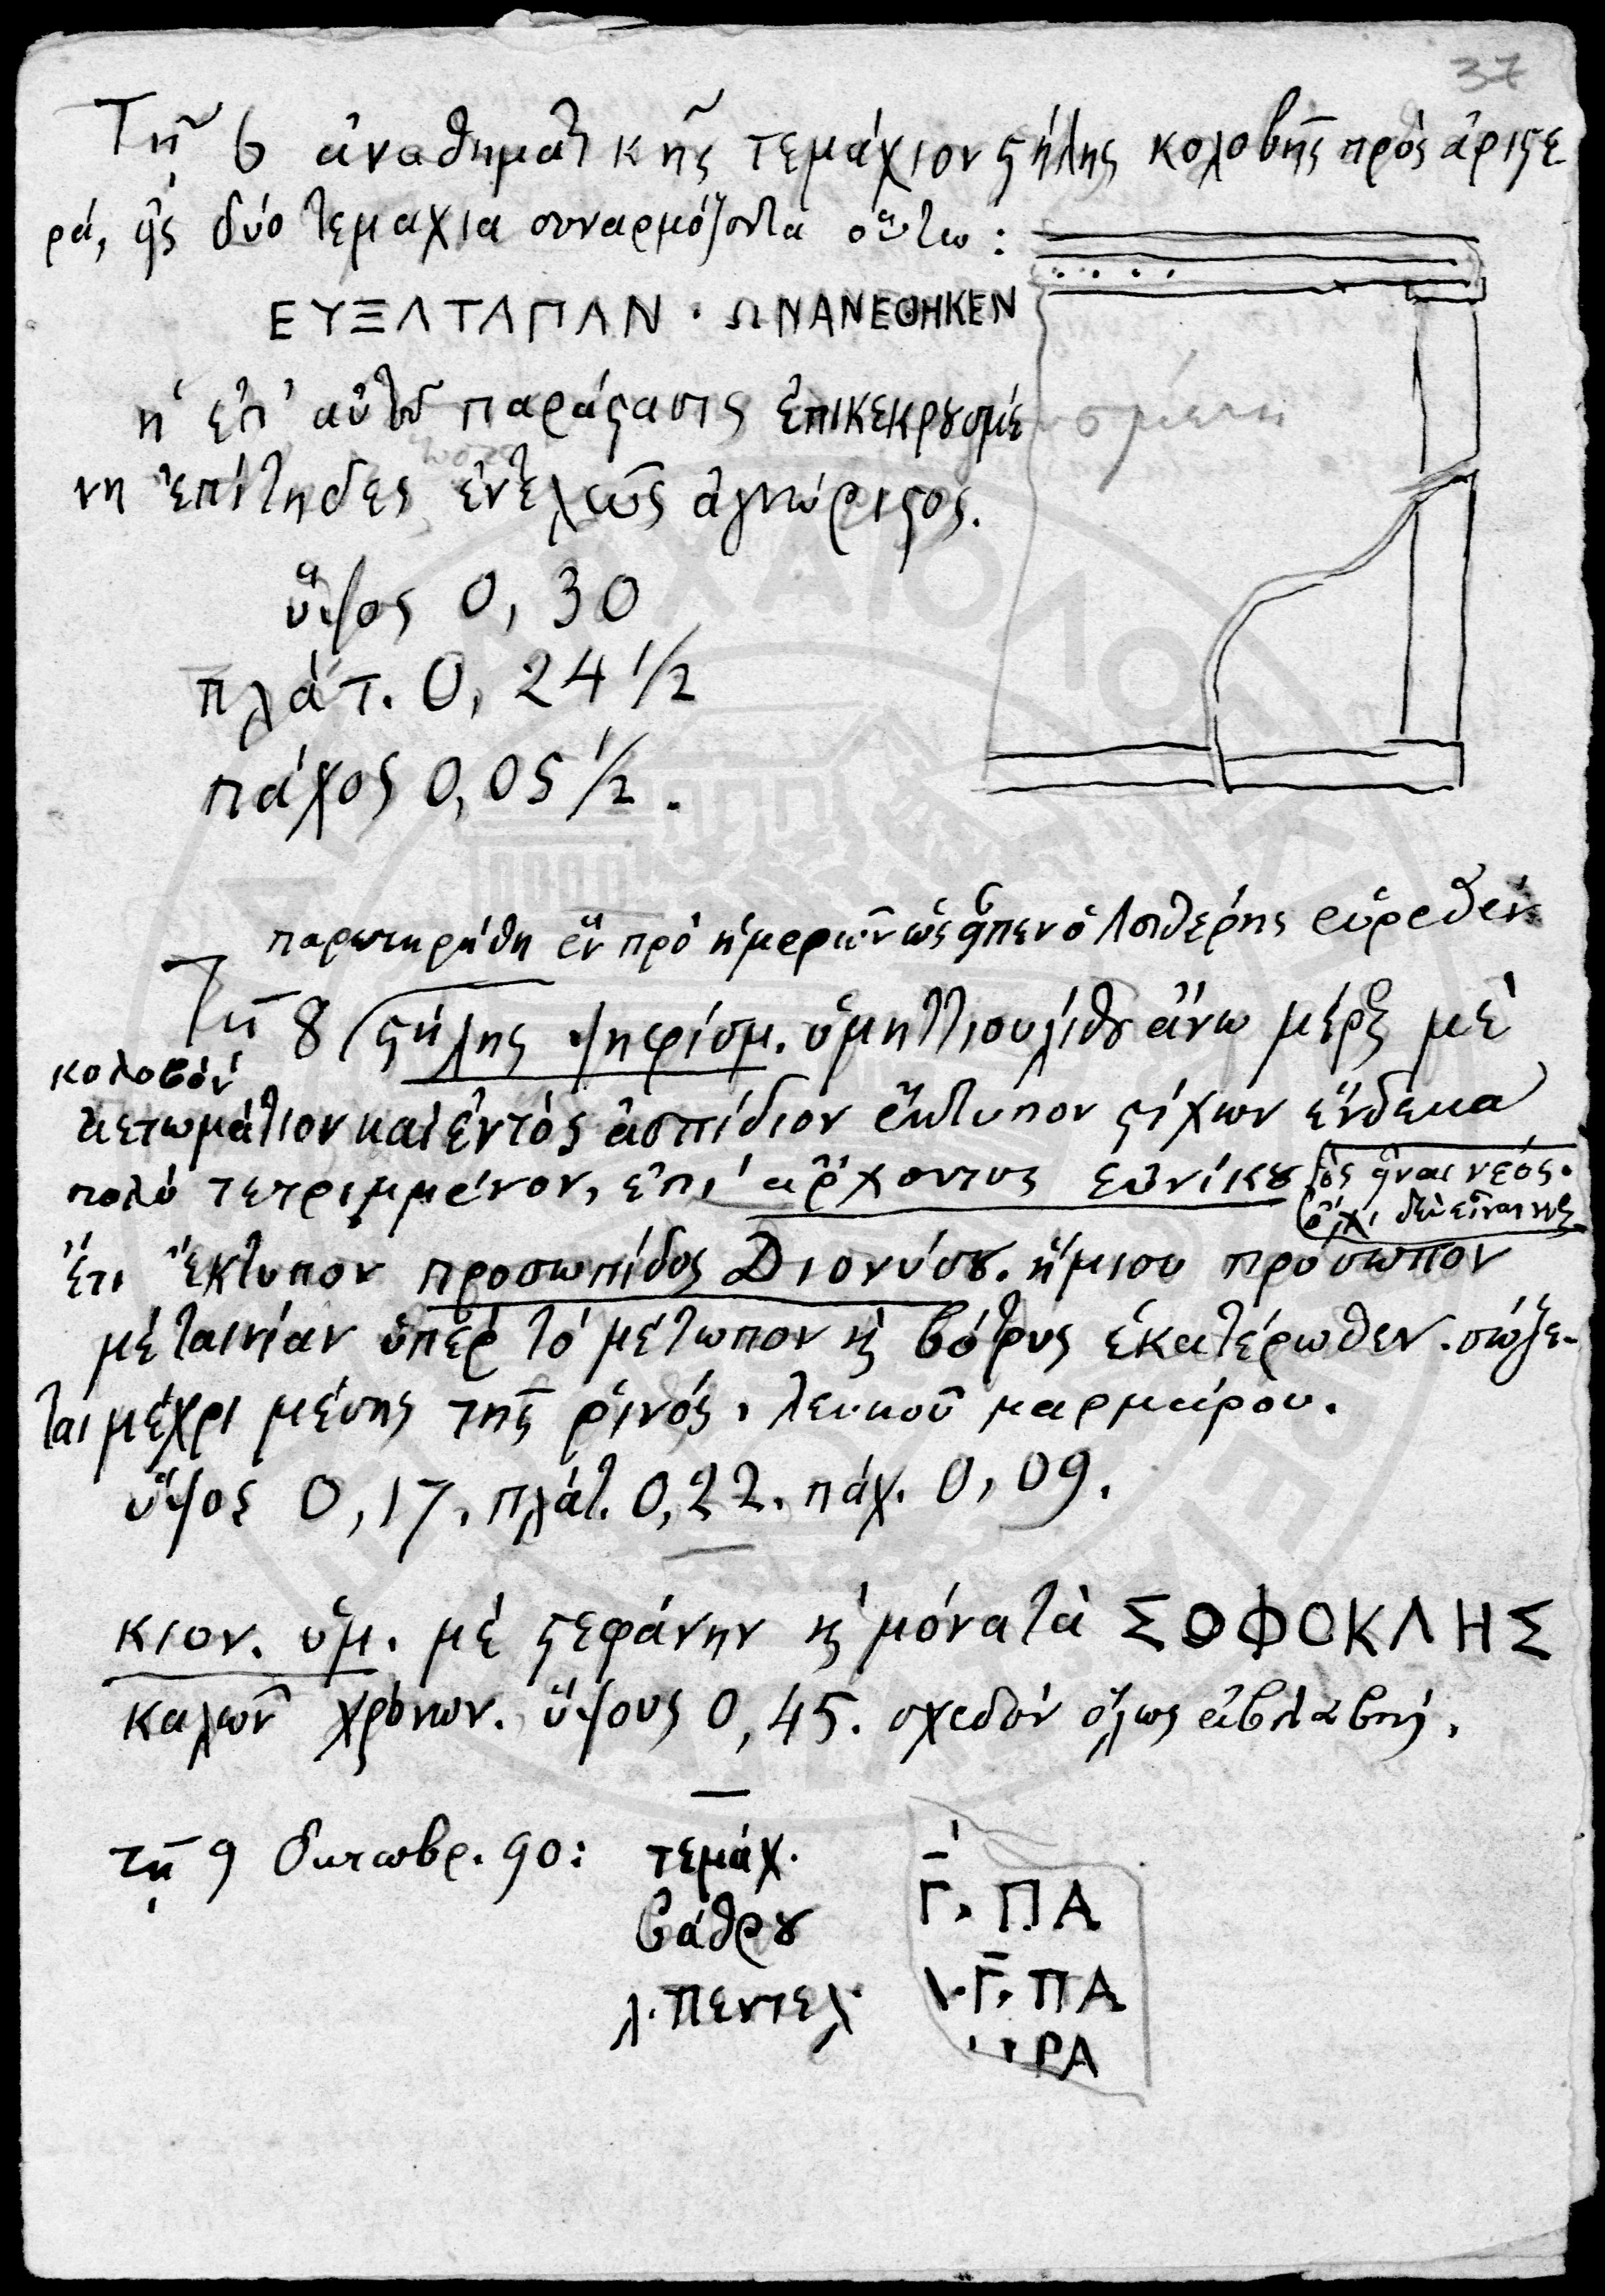 37
Τῇ 6 ἀναθηματικῆς τεμάχιον στήλης κολοβῆς πρὸς ἀριστε
ρά, ᾗς δύο τεμαχια συναρμόζοντα οὕτω:
ΕΥΞΛΤΛΠΛΝ · ΩΝΑΝΕΘΗΚΕΝ
ἡ ἐπ' αὐτοῦ παράστασις ἐπικεκρουσμέ
νη ἐπίτηδες ἐντελῶς ἀγνώριστος.
ὕψος 0,30
πλάτ. 0,24 1/2
πάχος 0,05 1/2.
παρετηρήθη ἓν πρὸ ἡμερῶν ὡς εἶπεν ὁ εὑρεθέν
Τῇ 8 στήλης ψηφίσμ. ὑμηττίου λίθου ἄνω μέρος μὲ
κολοβόν
ἀετωμάτιον καὶ ἐντὸς ἀσπίδιον ἔκτυπον στίχων ἕνδεκα
πολὺ τετριμμένον, ἐπὶ ἄρχοντος Εὐνίκου ἂς ᾖναι νεός.
ὄχι δὲν εἶναι
ἔτι ἔκτυπον προσωπίδος Διονύσου. ἥμισυ πρόσωπον
μὲ ταινίαν ὑπὲρ τὸ μέτωπον κ̀ βότρυς ἑκατέρωθεν. σώζε-
ται μέχρι μέσης τῆς ῥινός, λευκοῦ μαρμάρου.
ὕψος 0,17. πλάτ. 0,22. πάχ. 0,09.
κιον. ὑμ. μὲ στεφάνην κ̀ μόνα τὰ ΣΟΦΟΚΛΗΣ
καλῶν χρόνων. ὕψους 0,45. σχεδὸν ὅλως ἀβλαβής.
τῇ 9 ὀκτωβρ. 90: τεμάχ.
βάθρου Γ. ΠΑ
λ. Πεντελ. Λ. Γ. ΠΑ
ΡΑ